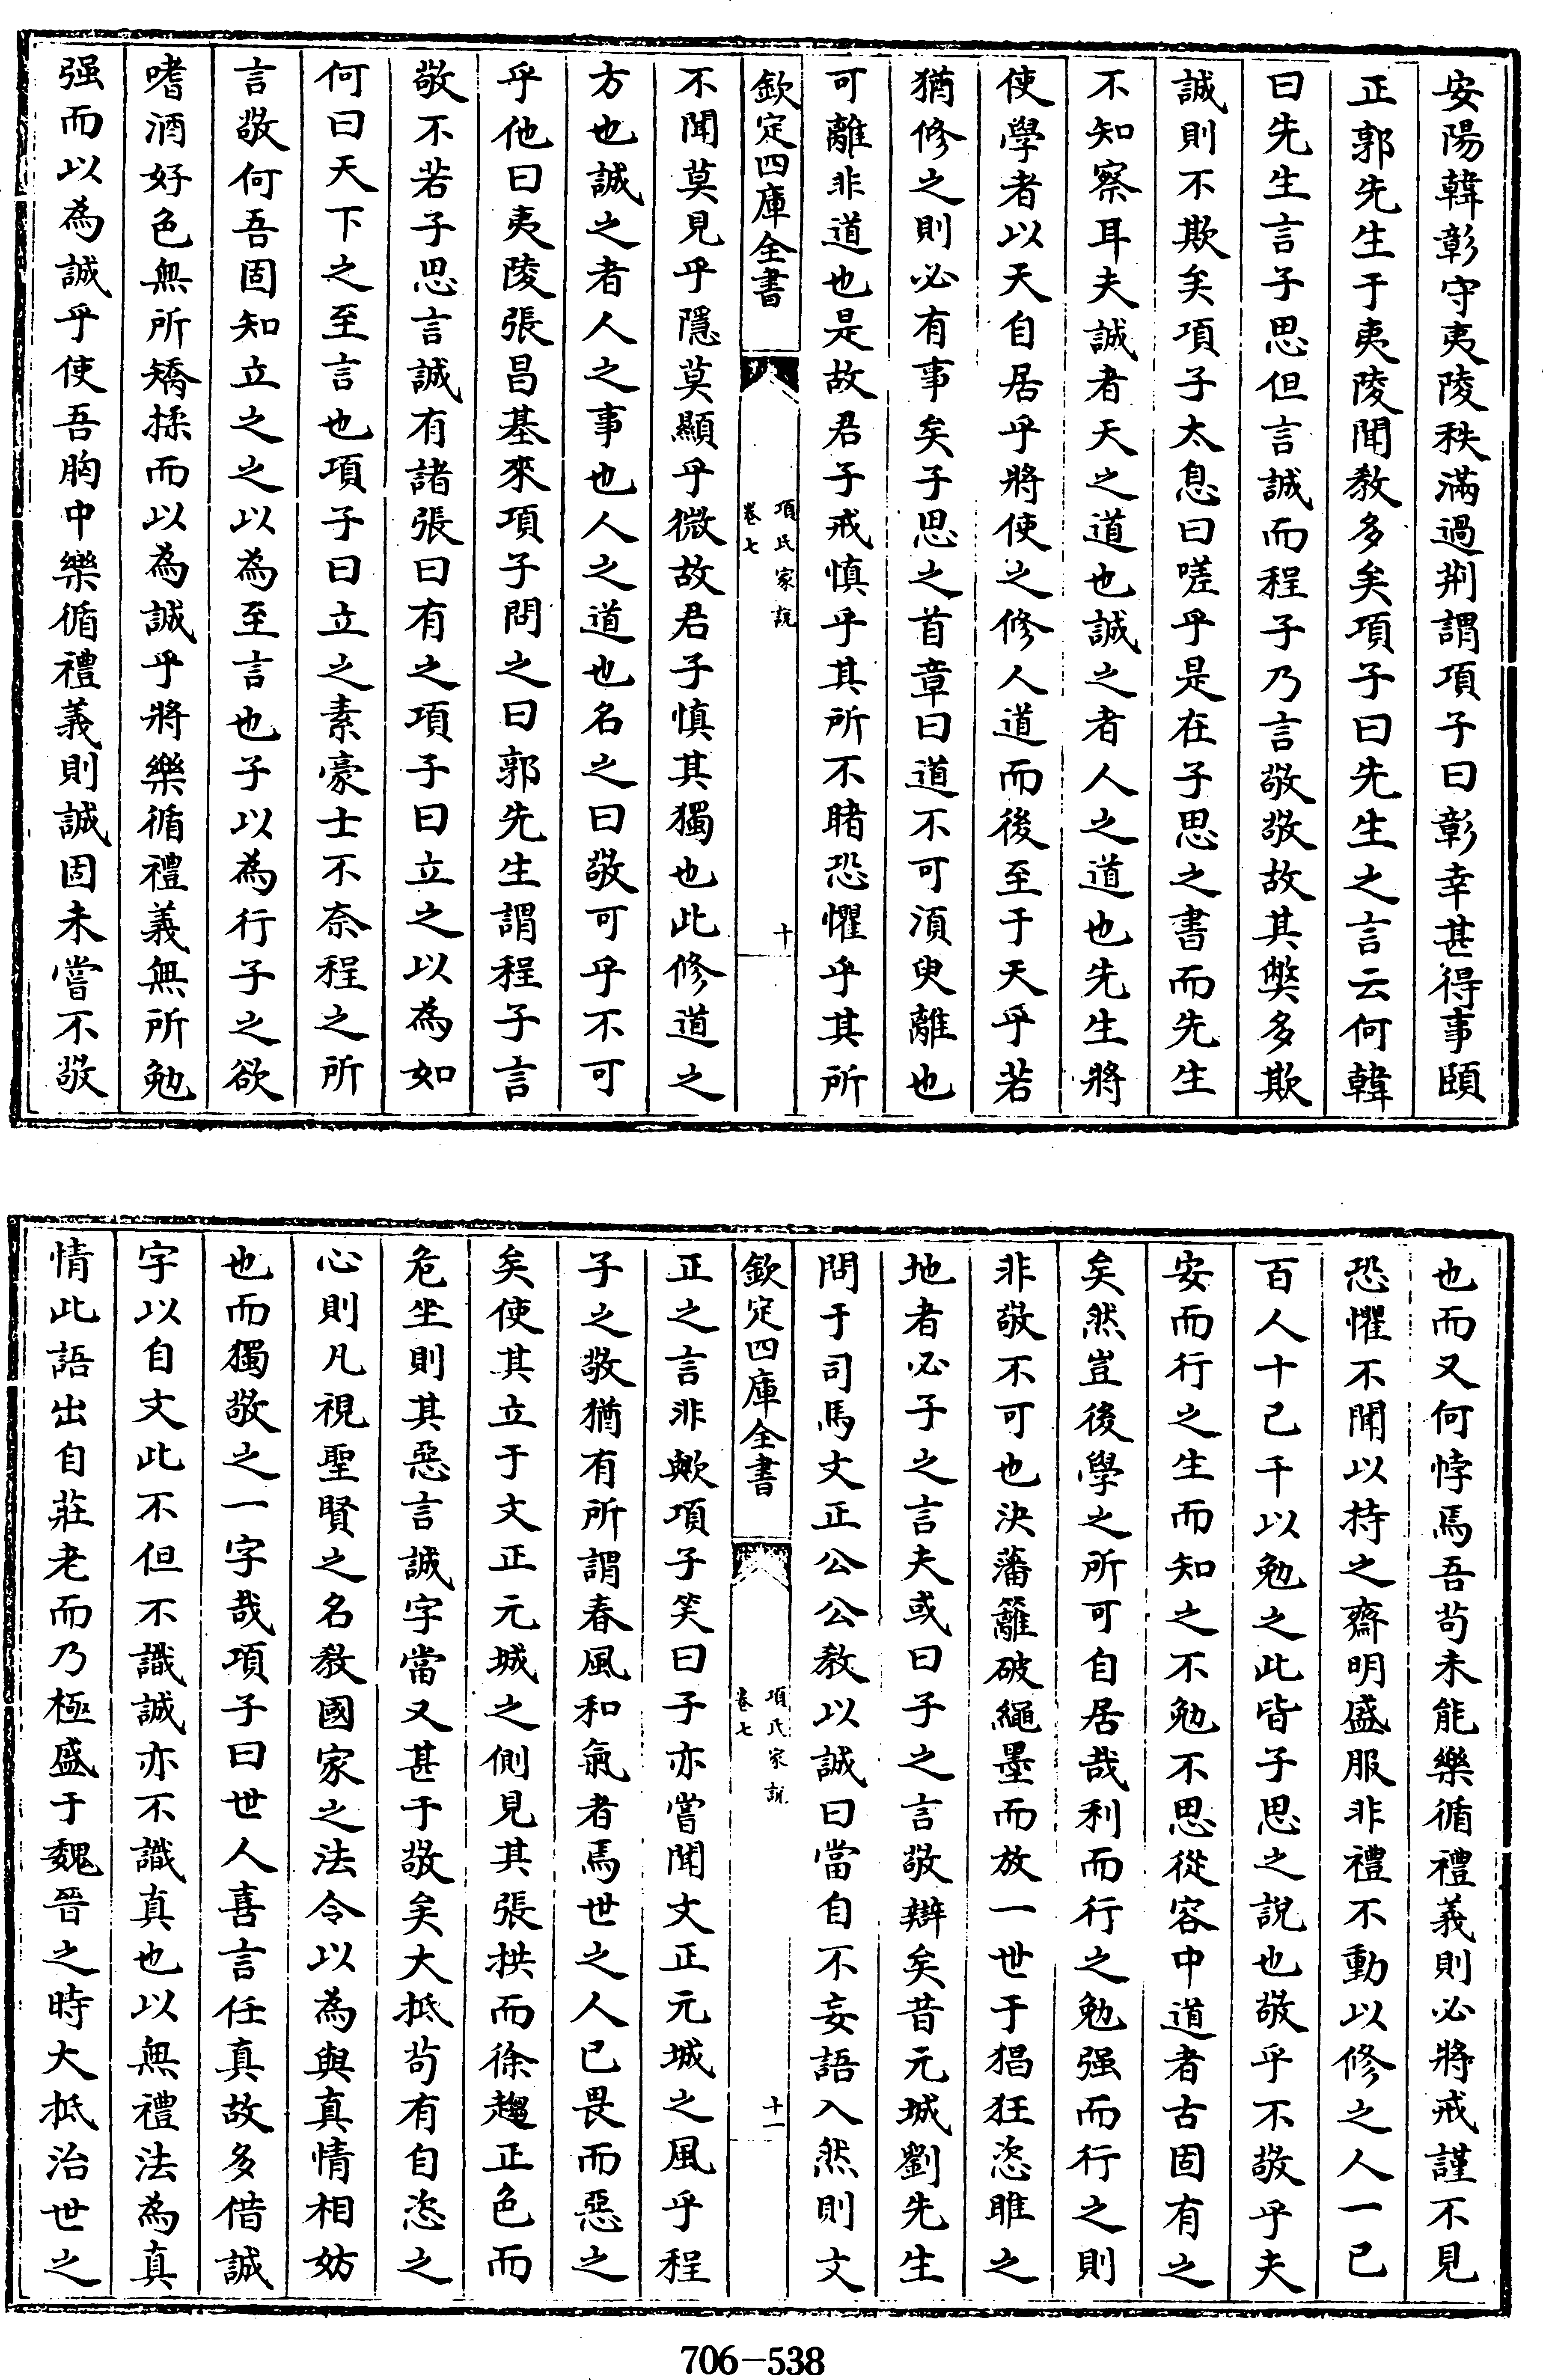 安陽韓彰守夷陵秩滿過荆謂項子曰彰幸甚得事頤
正郭先生于夷陵聞教多矣項子曰先生之言云何韓
曰先生言子思但言誠而程子乃言敬敬故其獘多欺
誠則不欺矣項子太息曰嗟乎是在子思之書而先生
不知察耳夫誠者天之道也誠之者人之道也先生將
使學者以天自居乎將使之修人道而後至于天乎若
猶修之則必有事矣子思之首章曰道不可湏臾離也
可離非道也是故君子戒慎乎其所不睹恐懼乎其所
欽定四庫全書
項氏家說
卷七
十
不聞莫見乎隱莫顯乎微故君子慎其獨也此修道之
方也誠之者人之事也人之道也名之曰敬可乎不可
乎他日夷陵張昌基來項子問之曰郭先生謂程子言
敬不若子思言誠有諸張曰有之項子曰立之以為如
何曰天下之至言也項子曰立之素豪士不奈程之所
言敬何吾固知立之之以為至言也子以為行子之欲
嗜酒好色無所矯揉而以為誠乎將樂循禮義無所勉
强而以為誠乎使吾胷中樂循禮義則誠固未嘗不敬
也而又何悖焉吾苟未能樂循禮義則必將戒謹不見
恐懼不聞以持之齋明盛服非禮不動以修之人一己
百人十己千以勉之此皆子思之說也敬乎不敬乎夫
安而行之生而知之不勉不思從容中道者古固有之
矣然豈後學之所可自居哉利而行之勉强而行之則
非敬不可也決藩籬破繩墨而放一世于猖狂恣睢之
地者必子之言夫或曰子之言敬辯矣昔元城劉先生
問于司馬文正公公教以誠曰當自不妄語入然則文
欽定四庫全書
項氏家說
卷七
十一
正之言非歟項子笑曰子亦嘗聞文正元城之風乎程
子之敬猶有所謂春風和氣者焉世之人已畏而惡之
矣使其立于文正元城之側見其張拱而徐趨正色而
危坐則其惡言誠字當又甚于敬矣大抵苟有自恣之
心則凡視聖賢之名教國家之法令以為與真情相妨
也而獨敬之一字哉項子曰世人喜言任真故多借誠
字以自文此不但不識誠亦不識真也以無禮法為真
情此語出自莊老而乃極盛于魏晉之時大抵治世之
706-538